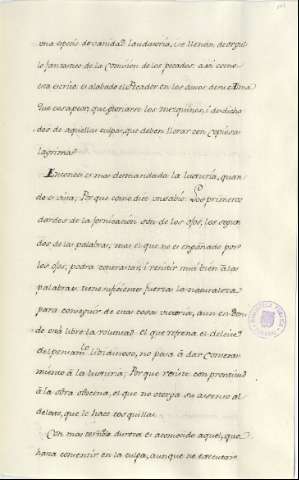 una especie de vanidad laudatoria, i se llenan de orgu-
llo fantastico de la comision de los pecados. assi como
esta escrito: es alabado el Pecador en los deseos de su Alma
que es
dos de aquellas culpas, que deben llorar con copiosas
lagrimas.
Entonces es mas demandada la luxuria, quan-
do es vista; Porque como dice un sabio: Los primeros
dardos de la fornicacion son de los ojos, los segun-
dos de las palabras, mas el que no es engañado por
los ojos, podra contrastar, i resistir mui bien á las
palabras, tiene suficiente fuerza la naturaleza
para conseguir de estas cosas victoria, aun en don-
de está libre la voluntad. el que refrena el deleite
del pensamto libidinoso, no pasa á dar consenti-
miento á la luxuria; Porque resiste con prontitud
á la obra obscena, el que no otorga su ascenso al
deleite, que le hace cosquillas.
Con mas terrible dureza es atormentado aquel, que
hasta consentir en la culpa, aunque no executare